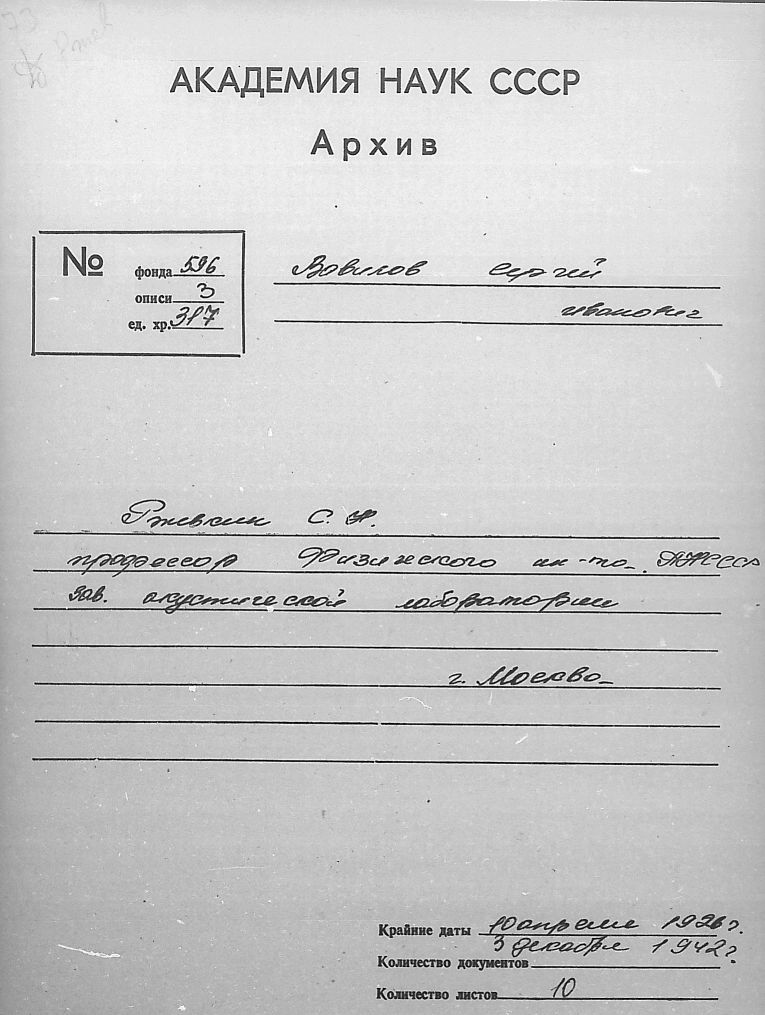 АКАДЕМИЯ НАУК СССР
Архив
№
фонда 596
описи 3
ед. хр. 317
Вавилов Сергей
Иванович
Ржевкин С. Н.
профессор Физического ин-та АН СССР
зав. акустической лаборатории
г. Москва
Крайние даты 10 апреля 1926 г.
3 декабря 1942 г.
Количество документов
Количество листов 10